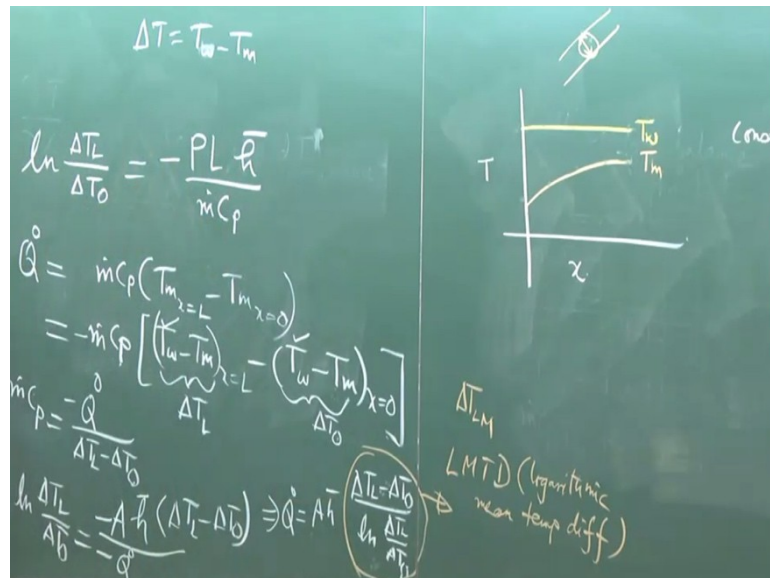 ΔT = T_w - T_m
ln ΔT_L/ΔT_0 = - PL h̄/ṁC_p
Q̇ = ṁC_p (T_m x=L - T_m x=0)
= -ṁC_p [(T_w - T_m)x=L - (T_w - T_m)x=0]
ΔT_L ΔT_0
ṁC_p = -Q̇/(ΔT_L - ΔT_0)
ln ΔT_L/ΔT_0 = -A h̄ (ΔT_L - ΔT_0)/-Q̇ ⇒ Q̇ = A h̄ (ΔT_L - ΔT_0)/(ln ΔT_L/ΔT_0)
T
T_w
T_m
x
ΔT_LM
LMTD (logaritmic
mean temp diff)